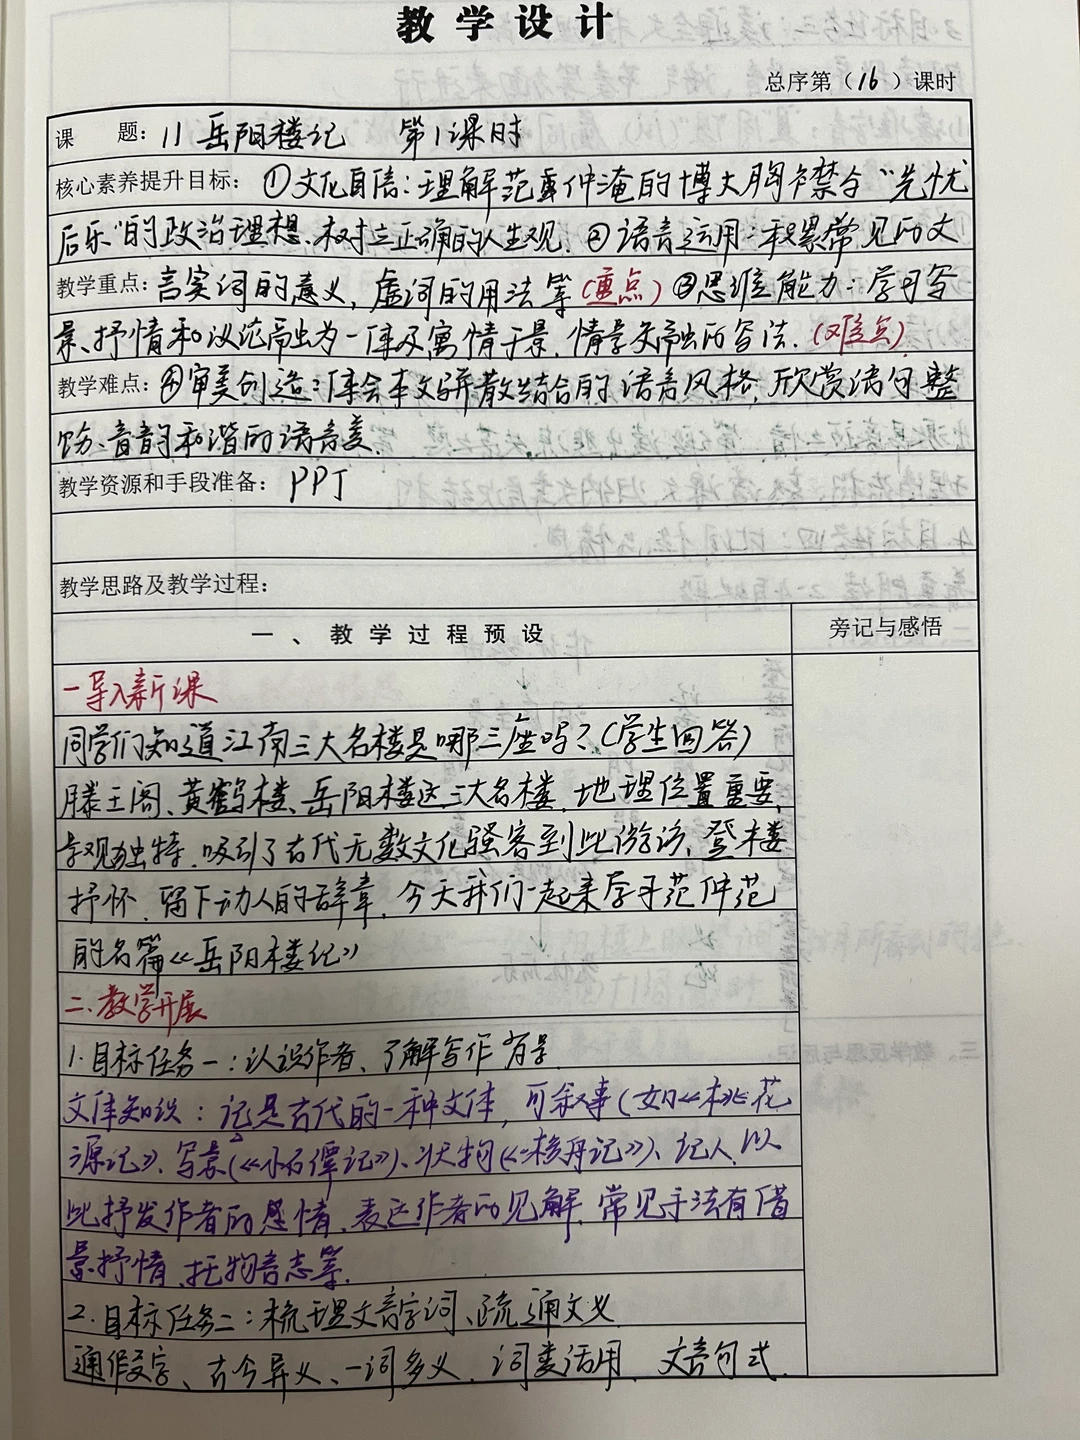 教学设计
总序第（16）课时
课 题：11 岳阳楼记 第1课时
核心素养提升目标：①文化自信：理解范仲淹的博大胸襟令"先忧
后乐"的政治理想、树立正确的人生观. ②语言运用：积累常见的文
教学重点：言实词的意义，虚词的用法等（重点）③思维能力：学习写
景、抒情和议论融为一体及寓情于景，情景交融的写法.（难点）
教学难点：④审美创造：体会本文骈散结合的语言风格，欣赏语句整
饬、音韵和谐的语言美.
教学资源和手段准备：PPT
教学思路及教学过程：
一、教学过程预设
旁记与感悟
一导入新课
同学们知道江南三大名楼是哪三座吗？（学生回答）
滕王阁、黄鹤楼、岳阳楼这三大名楼，地理位置重要，
景观独特，吸引了古代无数文化骚客到此游访、登楼
抒怀，留下动人的辞章，今天我们一起来学习范仲范
的名篇《岳阳楼记》
二.教学开展
1.目标任务一：认识作者、了解写作背景
文体知识：记是古代的一种文体，可叙事（如《桃花
源记》、写景（《小石潭记》）、状物（《核舟记》）、记人，以
此抒发作者的感情、表达作者的见解，常见手法有借
景抒情、托物言志等.
2.目标任务二：梳理文言字词、疏通文义
通假字、古今异义、一词多义、词类活用、文言句式.